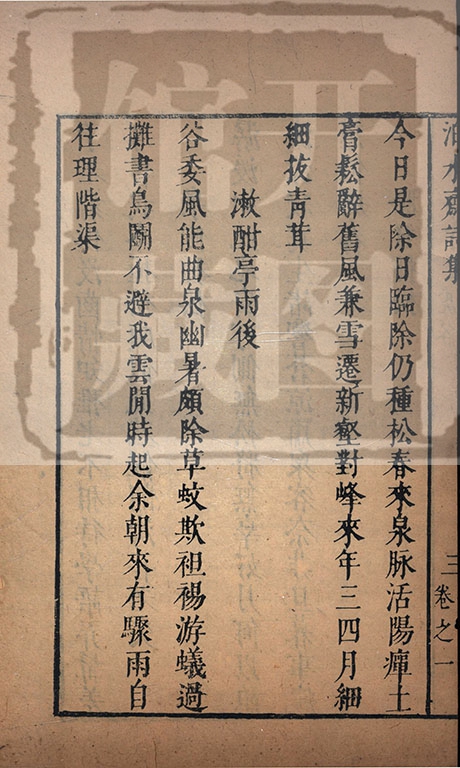 泊水齋詩集
三 卷之一
今日是除日臨除仍種松春來泉脉活陽癉土
膏鬆辭舊風兼雪遷新壑對峰來年三四月細
細拔青茸
漱酣亭雨後
谷委風能曲泉幽暑頗除草蚊欺袒裼游蟻過
攤書鳥鬭不避我雲閒時起余朝來有驟雨自
往理階渠